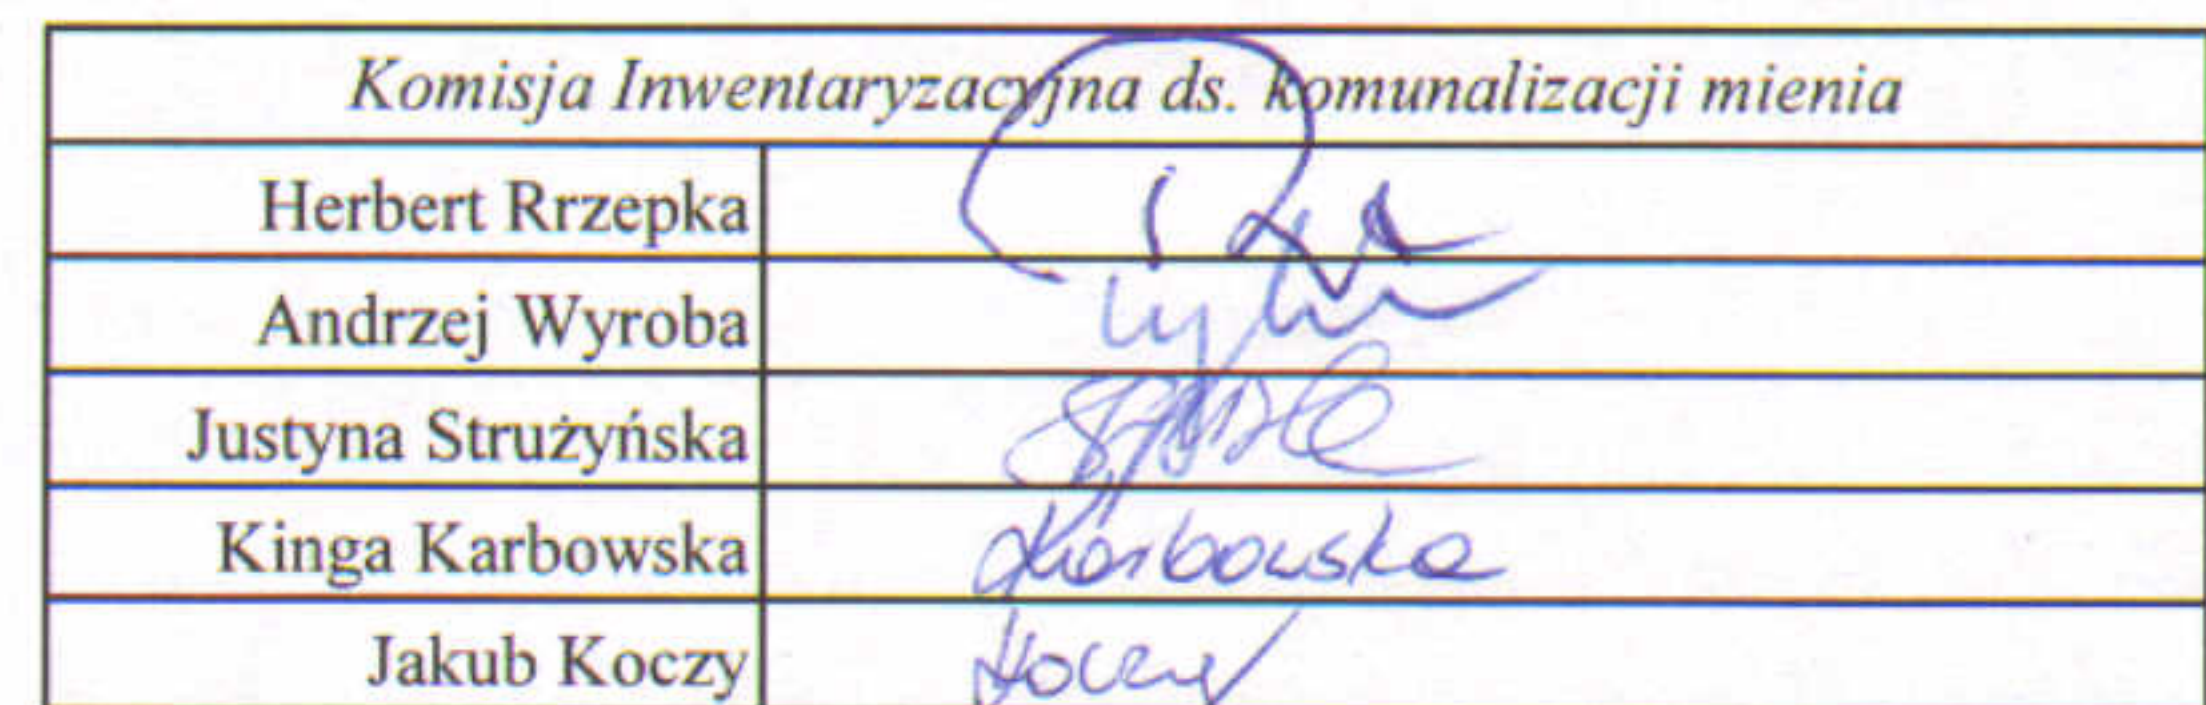 Komisja Inwentaryzacyjna ds. komunalizacji mienia
Herbert Rrzepka
Andrzej Wyroba
Justyna Strużyńska
Kinga Karbowska Karbowska
Jakub Koczy Koczy